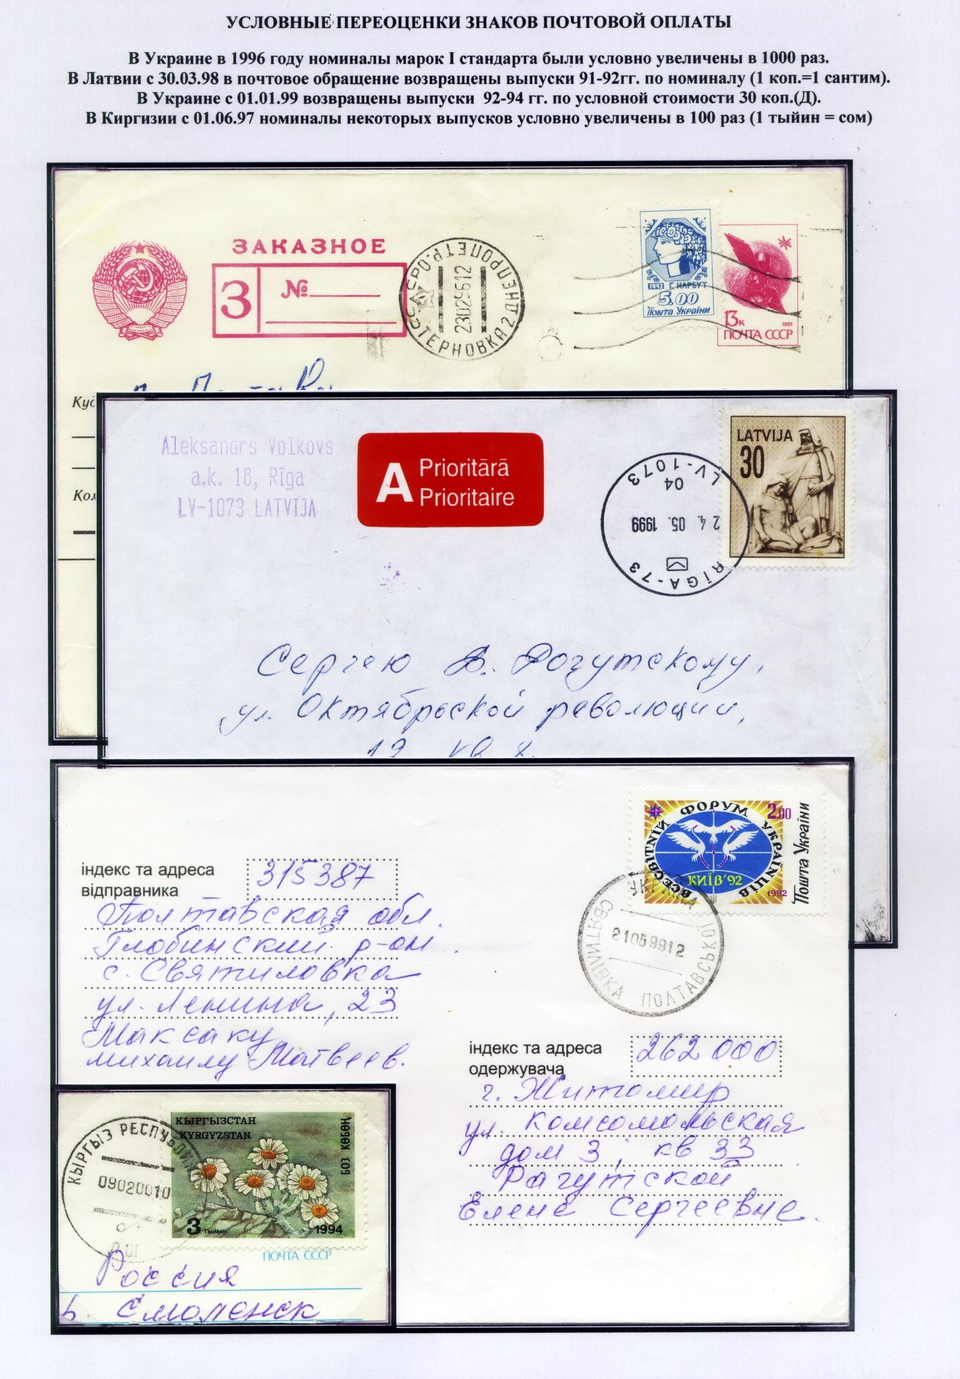 УСЛОВНЫЕ ПЕРЕОЦЕНКИ ЗНАКОВ ПОЧТОВОЙ ОПЛАТЫ
В Украине в 1996 году номиналы марок I стандарта были условно увеличены в 1000 раз.
В Латвии с 30.03.98 в почтовое обращение возвращены выпуски 91-92гг. по номиналу (1 коп.=1 сантим).
В Украине с 01.01.99 возвращены выпуски 92-94 гг. по условной стоимости 30 коп.(Д).
В Киргизии с 01.06.97 номиналы некоторых выпусков условно увеличены в 100 раз (1 тыйин = сом)
ЗАКАЗНОЕ
З №
ТЕРНОВКА 2 ДНЕПРОПЕТР.О
23029612
1992 Г. НАРБУТ
5.00
Пошта України
13к
1991
ПОЧТА СССР
Ку
Ко
Aleksandrs Volkovs
a.k. 18, Rīga
LV-1073 LATVIJA
A Prioritārā
Prioritaire
LV-1073
04
24. 05. 1999
RĪGA-73
LATVIJA
30
Сергею В. Рогутскому,
ул. Октябрьской революции,
19
ВСЕСВІТНІЙ ФОРУМ УКРАЇНЦІВ
КИЇВ'92
2.00
Пошта України
1992
УКРАЇНА
СВЯТИЛІВКА ПОЛТАВСЬКОЇ
21059912
індекс та адреса
відправника
315387
Полтавская обл.
Глобинский р-он
с. Святиловка
ул. Ленина, 23
Максаку
Михаилу Матвеев.
індекс та адреса
одержувача
262000
г. Житомир
ул. Комсомольская
дом 3, кв 33
Рагутской
Елене Сергеевне.
КЫРГЫЗ РЕСПУБЛИК
090200010
КЫРГЫЗСТАН
KYRGYZSTAN
БОЗ КӨБӨН
3 тыйын
1994
ПОЧТА СССР
Россия
г. Смоленск